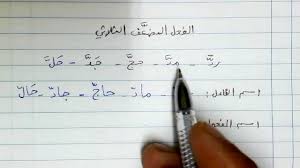 الفعل المضعَّف الثلاثي
ردَّ - مدَّ - حجَّ - جَدَّ - حَلَّ
اسم الفاعل : - مادّ - حاجّ - جادّ - حَالّ
اسم